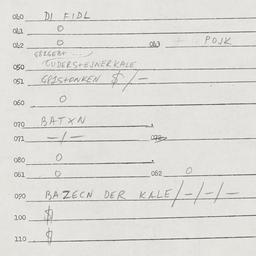 040 DI FIDL
041 0
042 0 043 POJK
050 GUDERSTEJNERKALE
051 GRISTONKEN $ / –
060 0
070 BATXN
071 –/–
080 0
081 0 082 0
090 BAZECN DER KALE/–/–/–
100 $
110 $